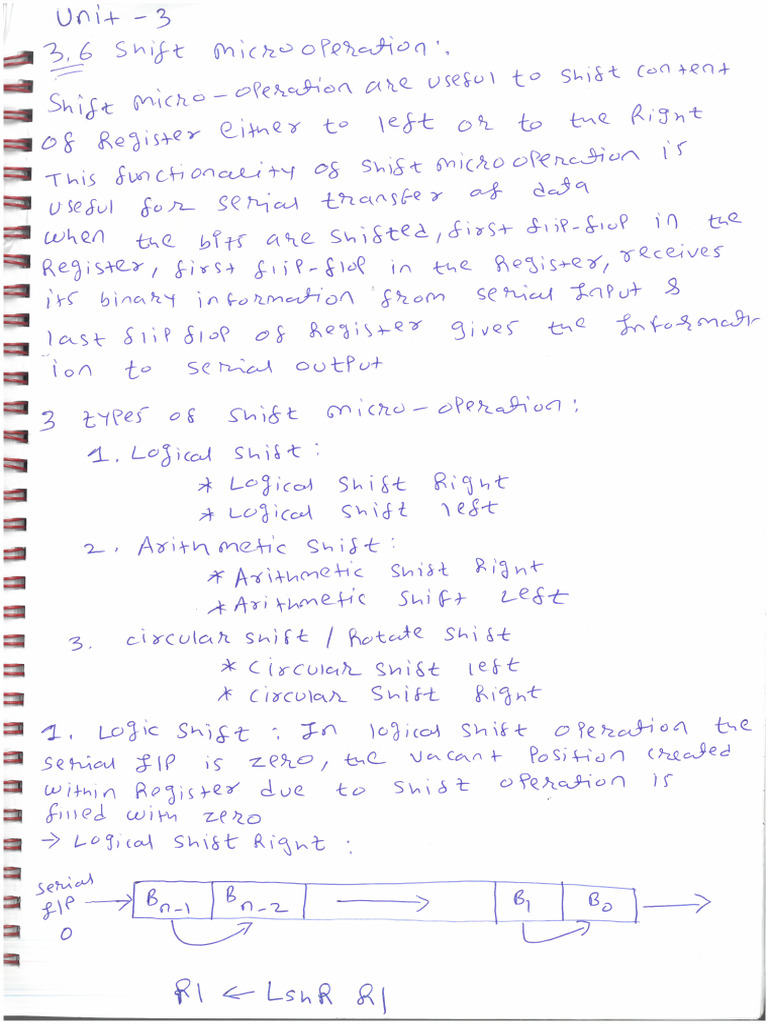 Unit - 3
3.6 Shift microoperation:.
Shift micro-operation are useful to shift content
of Register either to left or to the Right
This functionality of shift microoperation is
useful for serial transfer of data
when the bits are shifted, first flip-flop in the
Register, first flip-flop in the Register, receives
its binary information from serial Input &
last flip flop of Register gives the Informat
ion to serial output
3 types of shift micro-operation:
1. Logical shift:
* Logical Shift Right
* Logical Shift left
2. Arithmetic Shift:
* Arithmetic Shift Right
* Arithmetic Shift Left
3. circular shift / Rotate Shift
* Circular Shift left
* Circular Shift Right
1. Logic Shift : In logical shift operation the
serial I/P is zero, the vacant position created
within Register due to shift operation is
filled with zero
→ Logical Shift Right :
serial I/P 0 → Bn-1 Bn-2 → B1 B0 →
R1 ← LshR R1